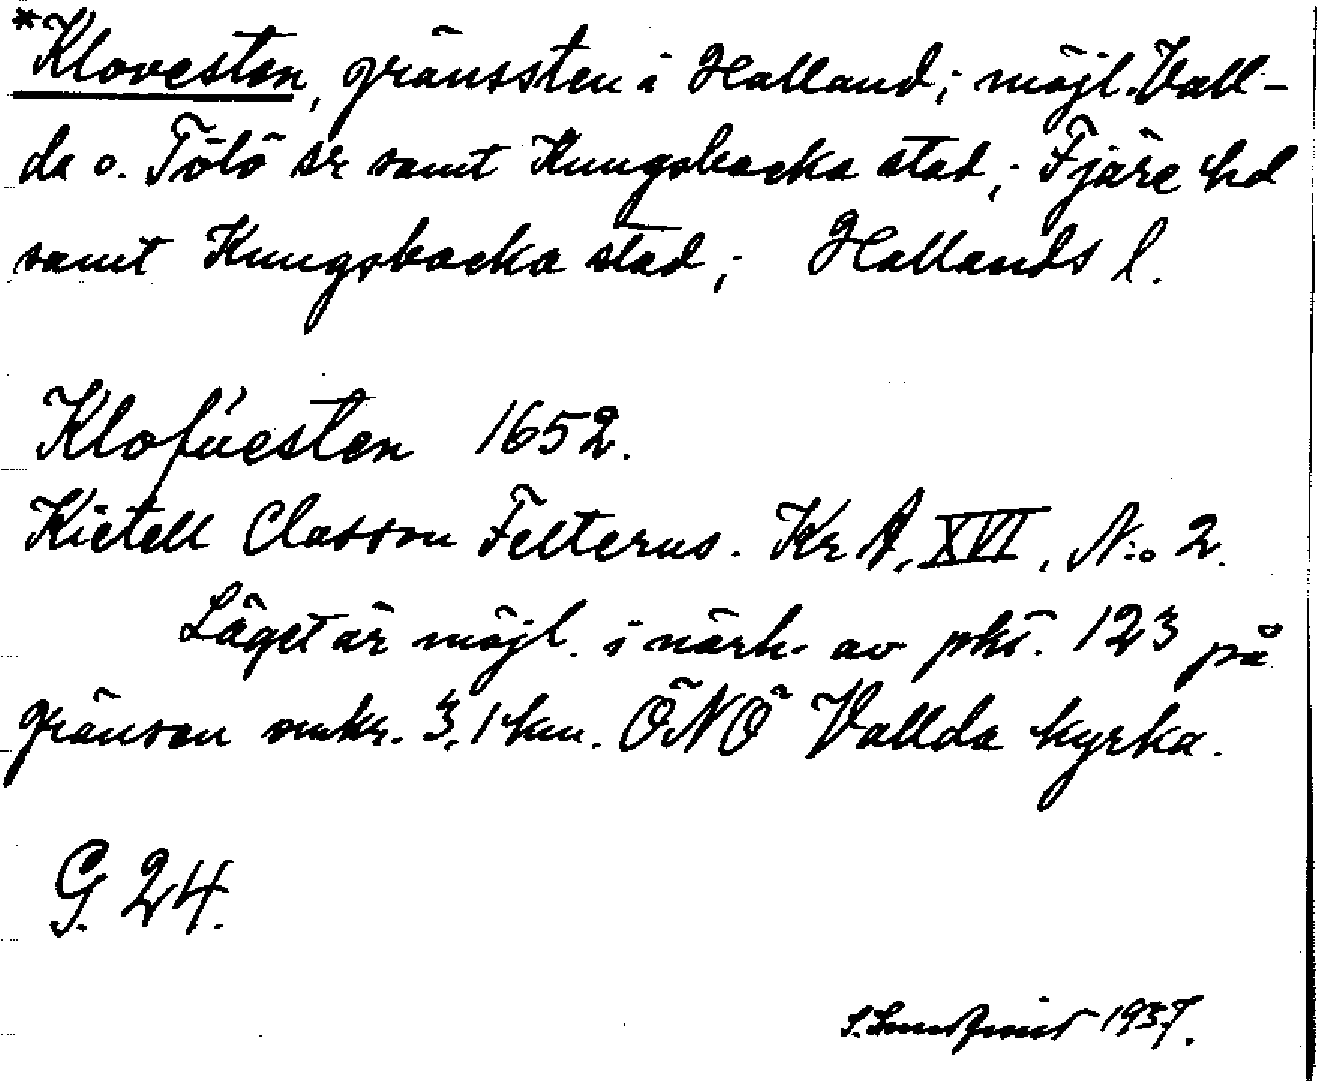 *Klovesten, gränssten i Halland; möjl. Vall-
da o. Tölö sr samt Kungsbacka stad; Fjäre hd
samt Kungsbacka stad; Hallands l.
Klofúesten 1652.
Kietell Classon Felterus. Kr A, XVI, N:o 2.
Läget är möjl. i närh. av pkt. 123 på
gränsen omkr. 3,1 km. ÖNÖ Vallda kyrka.
G. 24.
1937.